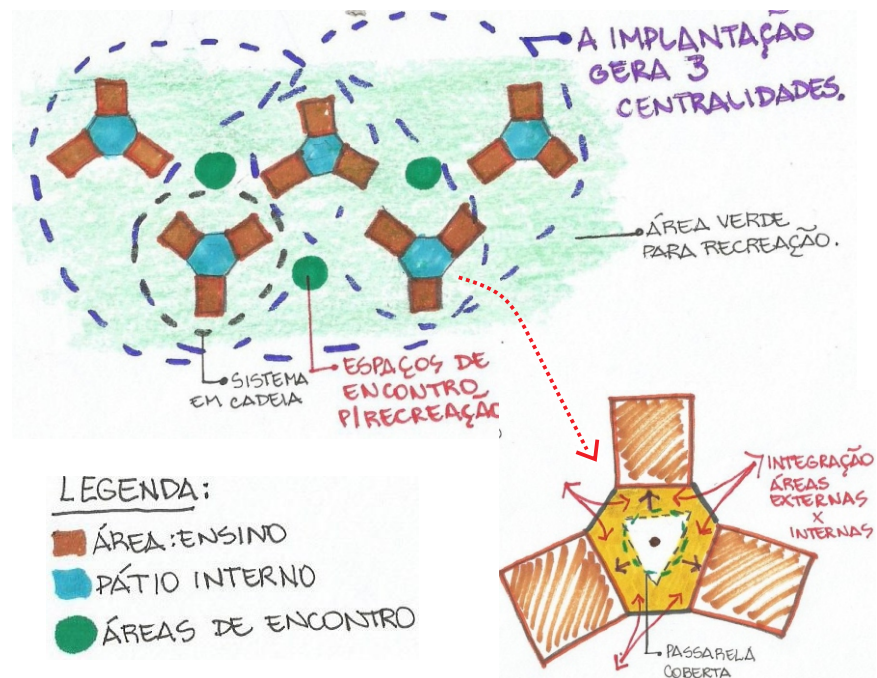 A IMPLANTAÇÃO
GERA 3
CENTRALIDADES.
ÁREA VERDE
PARA RECREAÇÃO.
SISTEMA
EM CADEIA
ESPAÇOS DE
ENCONTRO
P/RECREAÇÃO
LEGENDA:
ÁREA:ENSINO
PÁTIO INTERNO
ÁREAS DE ENCONTRO
INTEGRAÇÃO
ÁREAS
EXTERNAS
X
INTERNAS
PASSARELA
COBERTA